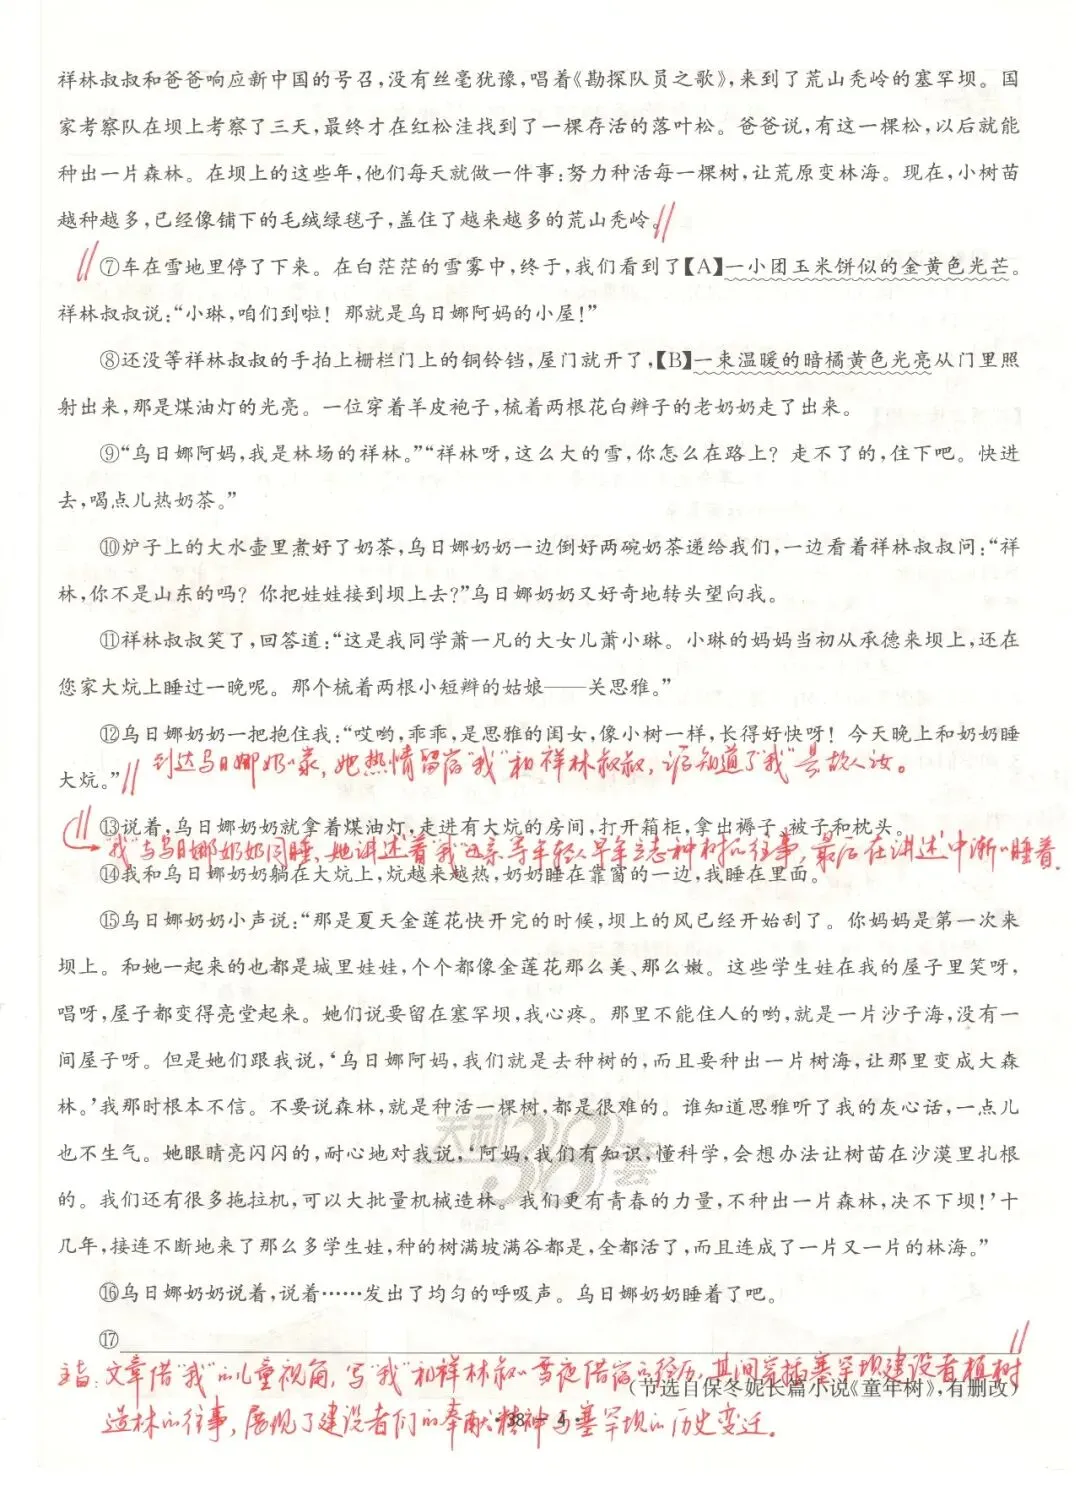 祥林叔叔和爸爸响应新中国的号召,没有丝毫犹豫,唱着《勘探队员之歌》,来到了荒山秃岭的塞罕坝。国
家考察队在坝上考察了三天,最终才在红松洼找到了一棵存活的落叶松。爸爸说,有这一棵松,以后就能
种出一片森林。在坝上的这些年,他们每天就做一件事:努力种活每一棵树,让荒原变林海。现在,小树苗
越种越多,已经像铺下的毛绒绿毯子,盖住了越来越多的荒山秃岭。
⑦车在雪地里停了下来。在白茫茫的雪雾中,终于,我们看到了【A】一小团玉米饼似的金黄色光芒。
祥林叔叔说:“小琳,咱们到啦!那就是乌日娜阿妈的小屋!”
⑧还没等祥林叔叔的手拍上栅栏门上的铜铃铛,屋门就开了,【B】一束温暖的暗橘黄色光亮从门里照
射出来,那是煤油灯的光亮。一位穿着羊皮袍子,梳着两根花白辫子的老奶奶走了出来。
⑨“乌日娜阿妈,我是林场的祥林。”“祥林呀,这么大的雪,你怎么在路上?走不了的,住下吧。快进
去,喝点儿热奶茶。”
⑩炉子上的大水壶里煮好了奶茶,乌日娜奶奶一边倒好两碗奶茶递给我们,一边看着祥林叔叔问:“祥
林,你不是山东的吗?你把娃娃接到坝上去?”乌日娜奶奶又好奇地转头望向我。
⑪祥林叔叔笑了,回答道:“这是我同学萧一凡的大女儿萧小琳。小琳的妈妈当初从承德来坝上,还在
您家大炕上睡过一晚呢。那个梳着两根小短辫的姑娘——关思雅。”
⑫乌日娜奶奶一把抱住我:“哎哟,乖乖,是思雅的闺女,像小树一样,长得好快呀!今天晚上和奶奶睡
到达乌日娜奶奶家,她热情留宿“我”和祥林叔叔,后知道了“我”是故人女。
大炕。”
⑬说着,乌日娜奶奶就拿着煤油灯,走进有大炕的房间,打开箱柜,拿出褥子、被子和枕头。
“我”与乌日娜奶奶同睡,她讲述着“我”父亲等年轻人早年立志种树的往事,最后在讲述中渐渐睡着.
⑭我和乌日娜奶奶躺在大炕上,炕越来越热,奶奶睡在靠窗的一边,我睡在里面。
⑮乌日娜奶奶小声说:“那是夏天金莲花快开完的时候,坝上的风已经开始刮了。你妈妈是第一次来
坝上。和她一起来的也都是城里娃娃,个个都像金莲花那么美、那么嫩。这些学生娃在我的屋子里笑呀,
唱呀,屋子都变得亮堂起来。她们说要留在塞罕坝,我心疼。那里不能住人的哟,就是一片沙子海,没有一
间屋子呀。但是她们跟我说,‘乌日娜阿妈,我们就是去种树的,而且要种出一片树海,让那里变成大森
林。’我那时根本不信。不要说森林,就是种活一棵树,都是很难的。谁知道思雅听了我的灰心话,一点儿
也不生气。她眼睛亮闪闪的,耐心地对我说,‘阿妈,我们有知识,懂科学,会想办法让树苗在沙漠里扎根
的。我们还有很多拖拉机,可以大批量机械造林。我们更有青春的力量,不种出一片森林,决不下坝!’十
几年,接连不断地来了那么多学生娃,种的树满坡满谷都是,全都活了,而且连成了一片又一片的林海。”
天利38套
⑯乌日娜奶奶说着,说着……发出了均匀的呼吸声。乌日娜奶奶睡着了吧。
⑰
主旨:文章借“我”的儿童视角,写“我”和祥林叔叔雪夜借宿的经历,其间穿插塞罕坝建设者植树
(节选自保冬妮长篇小说《童年树》,有删改)
造林的往事,展现了建设者们的奉献精神与塞罕坝的历史变迁.
·38—4·